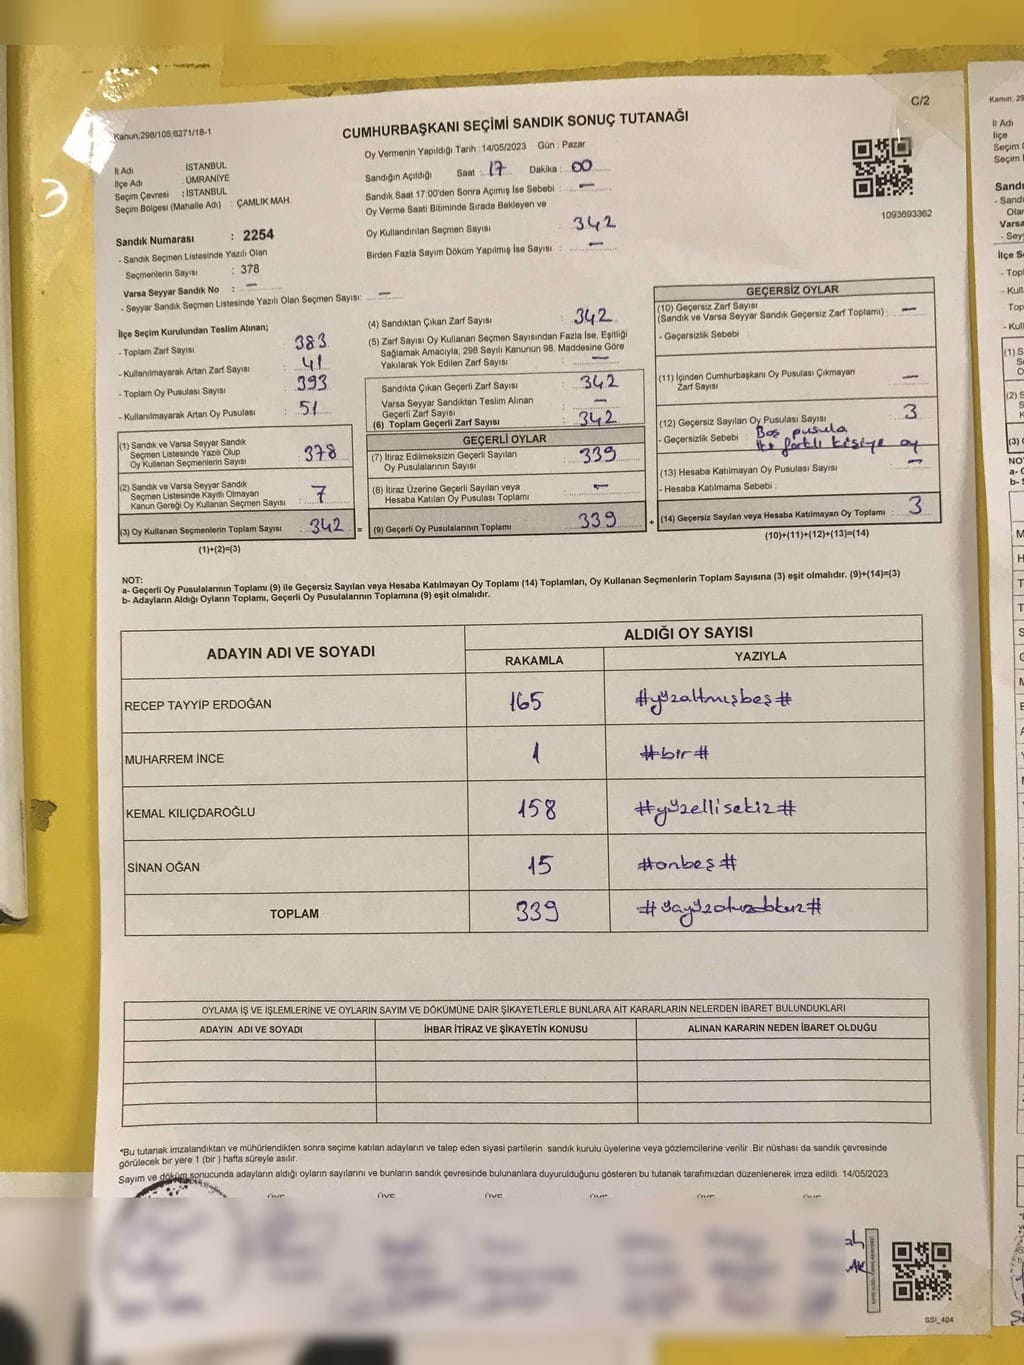 C/2
Kanun:298/105;6271/18-1
CUMHURBAŞKANI SEÇİMİ SANDIK SONUÇ TUTANAĞI
Oy Vermenin Yapıldığı Tarih : 14/05/2023 Gün : Pazar
İl Adı İSTANBUL
İlçe Adı : ÜMRANİYE
Seçim Çevresi : İSTANBUL
Seçim Bölgesi (Mahalle Adı) : ÇAMLIK MAH.
Sandık Numarası : 2254
- Sandık Seçmen Listesinde Yazılı Olan
Seçmenlerin Sayısı : 378
Varsa Seyyar Sandık No : —
- Seyyar Sandık Seçmen Listesinde Yazılı Olan Seçmen Sayısı: —
Sandığın Açıldığı Saat : 17 Dakika : 00
Sandık Saat 17:00'den Sonra Açımış İse Sebebi : —
Oy Verme Saati Bitiminde Sırada Bekleyen ve
Oy Kullandırılan Seçmen Sayısı : 342
Birden Fazla Sayım Döküm Yapılmış İse Sayısı : —
1093693362
İlçe Seçim Kurulundan Teslim Alınan;
- Toplam Zarf Sayısı : 383
- Kullanılmayarak Artan Zarf Sayısı : 41
- Toplam Oy Pusulası Sayısı : 393
- Kullanılmayarak Artan Oy Pusulası : 51
(1) Sandık ve Varsa Seyyar Sandık
Seçmen Listesinde Yazılı Olup
Oy Kullanan Seçmenlerin Sayısı : 378
(2) Sandık ve Varsa Seyyar Sandık
Seçmen Listesinde Kayıtlı Olmayan
Kanun Gereği Oy Kullanan Seçmen Sayısı : 7
(3) Oy Kullanan Seçmenlerin Toplam Sayısı : 342 =
(1)+(2)=(3)
(4) Sandıktan Çıkan Zarf Sayısı : 342
(5) Zarf Sayısı Oy Kullanan Seçmen Sayısından Fazla İse, Eşitliği
Sağlamak Amacıyla; 298 Sayılı Kanunun 98. Maddesine Göre
Yakılarak Yok Edilen Zarf Sayısı : —
Sandıkta Çıkan Geçerli Zarf Sayısı : 342
Varsa Seyyar Sandıktan Teslim Alınan
Geçerli Zarf Sayısı : —
(6) Toplam Geçerli Zarf Sayısı : 342
GEÇERLİ OYLAR
(7) İtiraz Edilmeksizin Geçerli Sayılan
Oy Pusulalarının Sayısı : 339
(8) İtiraz Üzerine Geçerli Sayılan veya
Hesaba Katılan Oy Pusulası Toplamı : —
(9) Geçerli Oy Pusulalarının Toplamı : 339 +
GEÇERSİZ OYLAR
(10) Geçersiz Zarf Sayısı
(Sandık ve Varsa Seyyar Sandık Geçersiz Zarf Toplamı) : —
- Geçersizlik Sebebi :
(11) İçinden Cumhurbaşkanı Oy Pusulası Çıkmayan
Zarf Sayısı : —
(12) Geçersiz Sayılan Oy Pusulası Sayısı : 3
- Geçersizlik Sebebi : Boş pusula
İki farklı kişiye oy
(13) Hesaba Katılmayan Oy Pusulası Sayısı : —
- Hesaba Katılmama Sebebi :
(14) Geçersiz Sayılan veya Hesaba Katılmayan Oy Toplamı : 3
(10)+(11)+(12)+(13)=(14)
NOT:
a- Geçerli Oy Pusulalarının Toplamı (9) ile Geçersiz Sayılan veya Hesaba Katılmayan Oy Toplamı (14) Toplamları, Oy Kullanan Seçmenlerin Toplam Sayısına (3) eşit olmalıdır. (9)+(14)=(3)
b- Adayların Aldığı Oyların Toplamı, Geçerli Oy Pusulalarının Toplamına (9) eşit olmalıdır.
ADAYIN ADI VE SOYADI ALDIĞI OY SAYISI
RAKAMLA YAZIYLA
RECEP TAYYİP ERDOĞAN 165 #yüzaltmışbeş#
MUHARREM İNCE 1 #bir#
KEMAL KILIÇDAROĞLU 158 #yüzellisekiz#
SİNAN OĞAN 15 #onbeş#
TOPLAM 339
OYLAMA İŞ VE İŞLEMLERİNE VE OYLARIN SAYIM VE DÖKÜMÜNE DAİR ŞİKAYETLERLE BUNLARA AİT KARARLARIN NELERDEN İBARET BULUNDUKLARI
ADAYIN ADI VE SOYADI İHBAR İTİRAZ VE ŞİKAYETİN KONUSU ALINAN KARARIN NEDEN İBARET OLDUĞU
*Bu tutanak imzalandıktan ve mühürlendikten sonra seçime katılan adayların ve talep eden siyasi partilerin sandık kurulu üyelerine veya gözlemcilerine verilir .Bir nüshası da sandık çevresinde
görülecek bir yere 1 (bir ) hafta süreyle asılır.
Sayım ve döküm sonucunda adayların aldığı oyların sayılarını ve bunların sandık çevresinde bulunanlara duyurulduğunu gösteren bu tutanak tarafımızdan düzenlenerek imza edildi. 14/05/2023
SSI_404